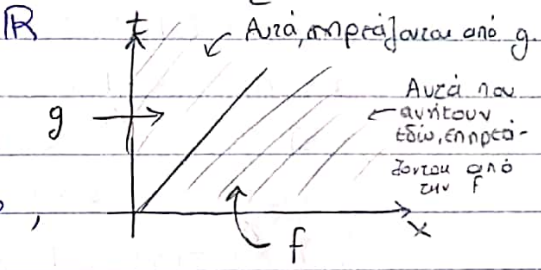 ℝ
t
Αυτά, επηρεάζονται από g.
g
Αυτά που
ανήκουν
εδώ, επηρεά-
ζονται από
την f
,
x
f